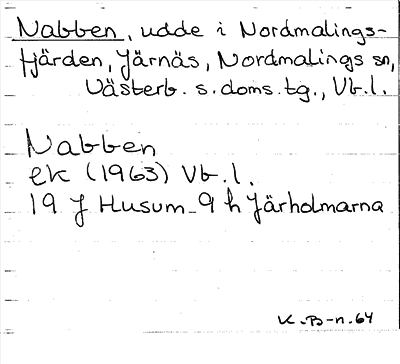 Nabben, udde i Nordmalings-
fjärden, Järnäs, Nordmalings sn,
Västerb. s. doms. tg., Vb. l.
Nabben
ek (1963) Vb. l.
19 J Husum 9 h Järholmarna
K. B-n. 64